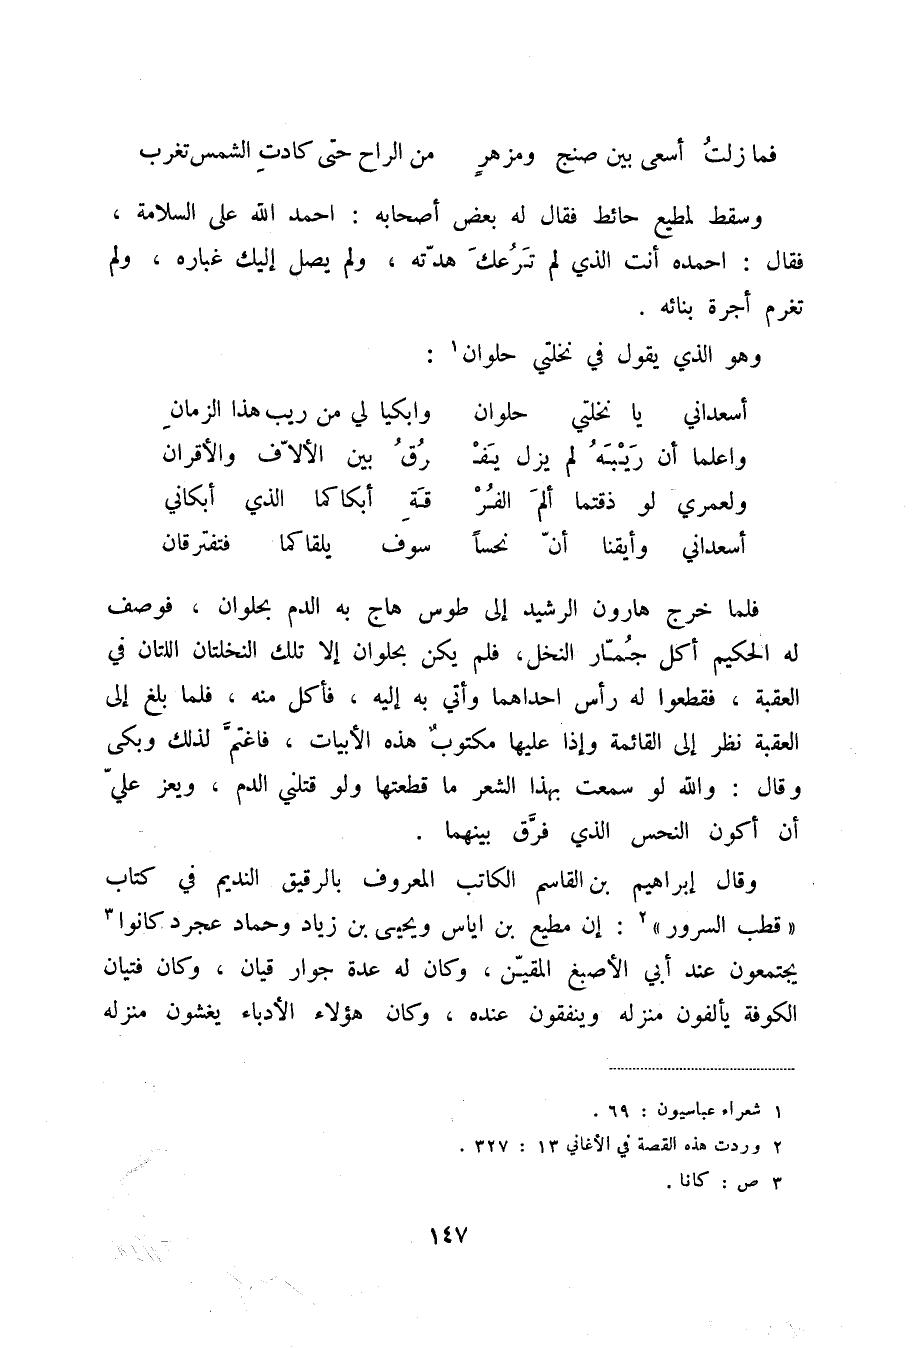 فما زلتُ أسعى بين صنج ومزهرٍ من الراح حتى كادتِ الشمس تغرب
وسقط لمطيع حائط فقال له بعض أصحابه : احمد الله على السلامة ،
فقال : احمده أنت الذي لم تَرُعكَ هدّته ، ولم يصل إليك غباره ، ولم
تغرم أجرة بنائه .
وهو الذي يقول في نخلتي حلوان١ :
أسعداني يا نخلتي حلوان وابكيا لي من ريب هذا الزمانِ
واعلما أن رَيْبَهُ لم يزل يَفْـ ـرُقُ بين الألاّف والأقران
ولعمري لو ذقتما ألمَ الفُرْ قَةِ أبكاكما الذي أبكاني
أسعداني وأيقنا أنّ نحساً سوف يلقاكما فتفترقان
فلما خرج هارون الرشيد إلى طوس هاج به الدم بحلوان ، فوصف
له الحكيم أكل جُمّار النخل، فلم يكن بحلوان إلا تلك النخلتان اللتان في
العقبة ، فقطعوا له رأس احداهما وأتي به إليه ، فأكل منه ، فلما بلغ إلى
العقبة نظر إلى القائمة وإذا عليها مكتوبٌ هذه الأبيات ، فاغتمَّ لذلك وبكى
وقال : والله لو سمعت بهذا الشعر ما قطعتها ولو قتلني الدم ، ويعز عليّ
أن أكون النحس الذي فرَّق بينهما .
وقال إبراهيم بن القاسم الكاتب المعروف بالرقيق النديم في كتاب
« قطب السرور »٢ : إن مطيع بن اياس ويحيى بن زياد وحماد عجرد كانوا٣
يجتمعون عند أبي الأصبغ المقيّن ، وكان له عدة جوار قيان ، وكان فتيان
الكوفة يألفون منزله وينفقون عنده ، وكان هؤلاء الأدباء يغشون منزله
١ شعراء عباسيون : ٦٩ .
٢ وردت هذه القصة في الأغاني ١٣ : ٣٢٧ .
٣ ص : كانا .
١٤٧